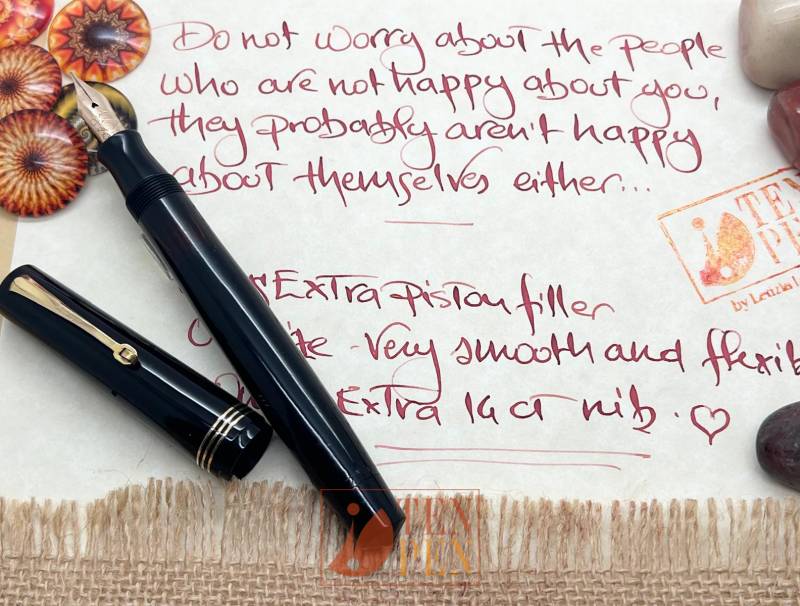 Do not worry about the people
who are not happy about you,
they probably aren't happy
about themselves either...
Extra piston filler
very smooth and flexib
Extra 14 ct nib.
TEN
PEN
by Letizia
TEN
PEN